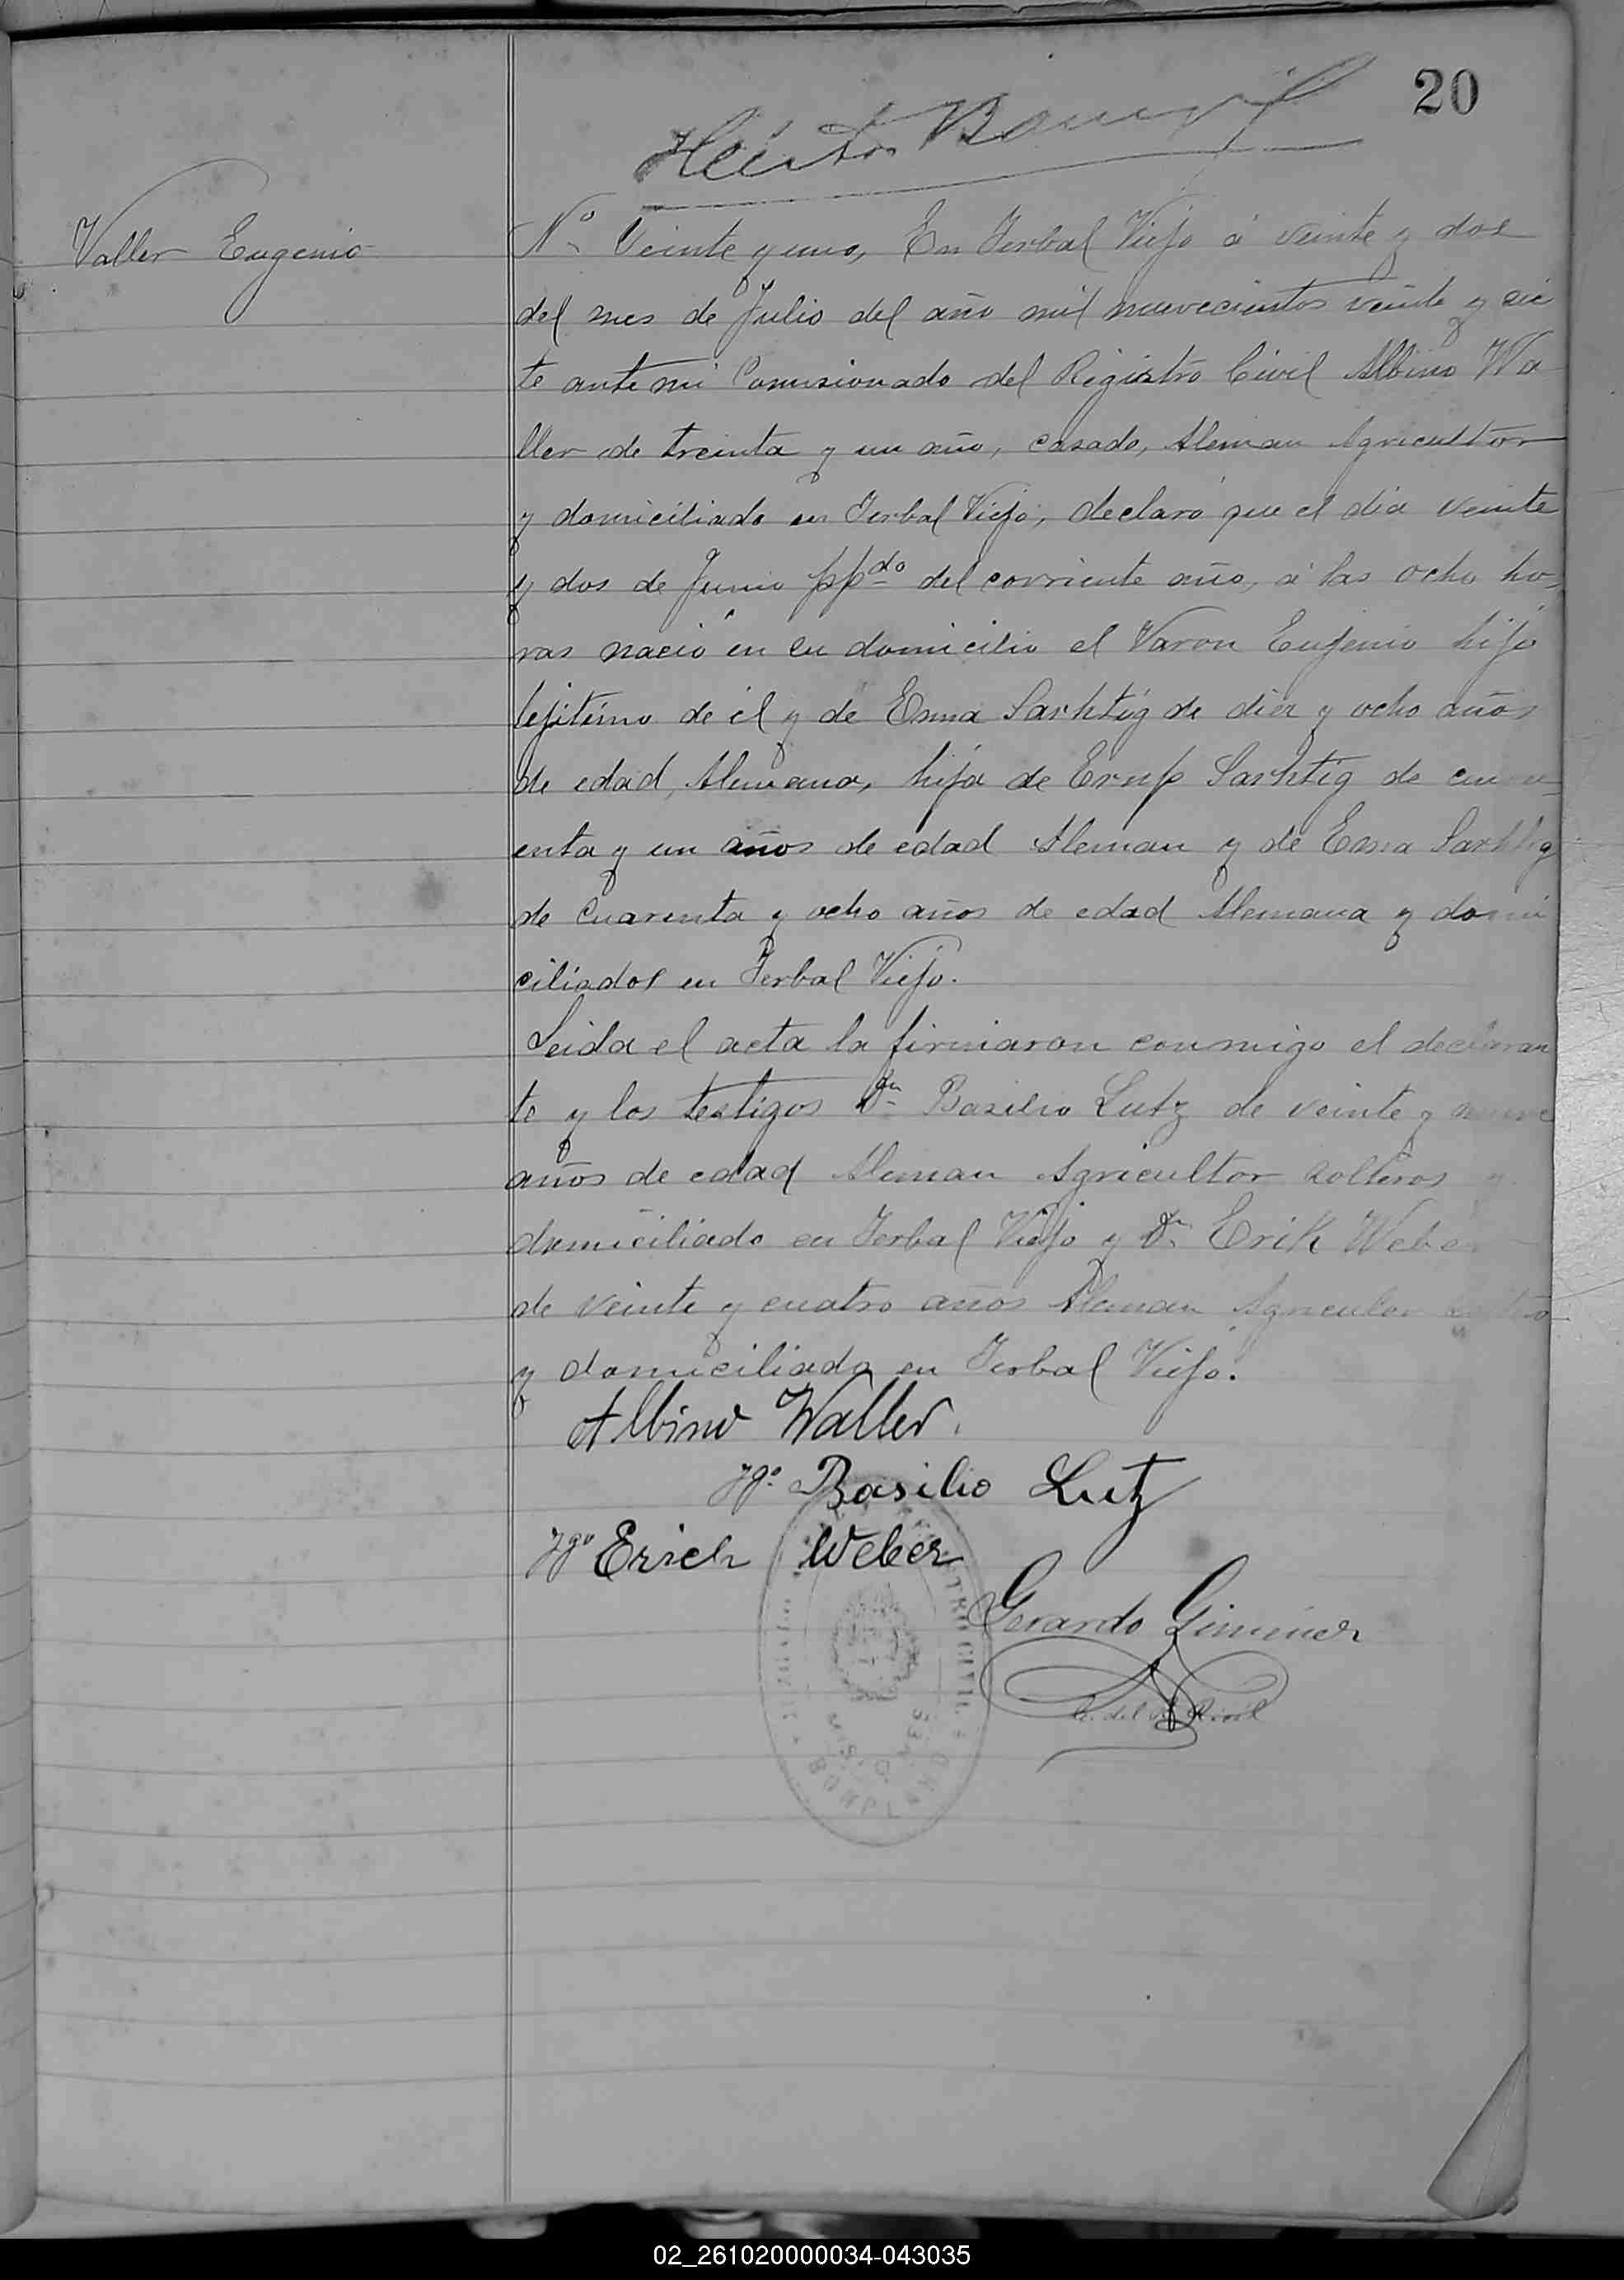 20
Valler Eugenio
Nº Veinte y uno, En Yerbal Viejo á veinte y dos
del mes de Julio del año mil nuevecientos veinte y sie
te ante mi Comisionado del Registro Civil Albino Wa
ller de treinta y un año, casado, Aleman Agricultor
y domiciliado en Yerbal Viejo, declaró que el dia veinte
y dos de Junio ppdo del corriente año, á las ocho ho
ras nació en su domicilio el Varon Eujenio hijo
lejitimo de él y de Erma Sarhtig de diez y ocho años
de edad, Alemana, hija de Sarhtig de
enta y un años de edad Aleman y de Erma Sarhtig
de cuarenta y ocho años de edad Alemana y domi
ciliados en Yerbal Viejo.
Leida el acta la firmaron conmigo el declaran
te y los testigos Dn Basilio Lutz de veinte y nueve
años de edad Aleman Agricultor solteros y
domiciliado en Yerbal Viejo y Dn Erik Weber
de veinte y cuatro años Aleman
y domiciliado en Yerbal Viejo.
Albino Waller.
Tgo. Basilio Lutz
Tgo Erich Weber
Gerardo Gimenez
del R. Civil
MISIONES
BONPLAND
02_261020000034-043035